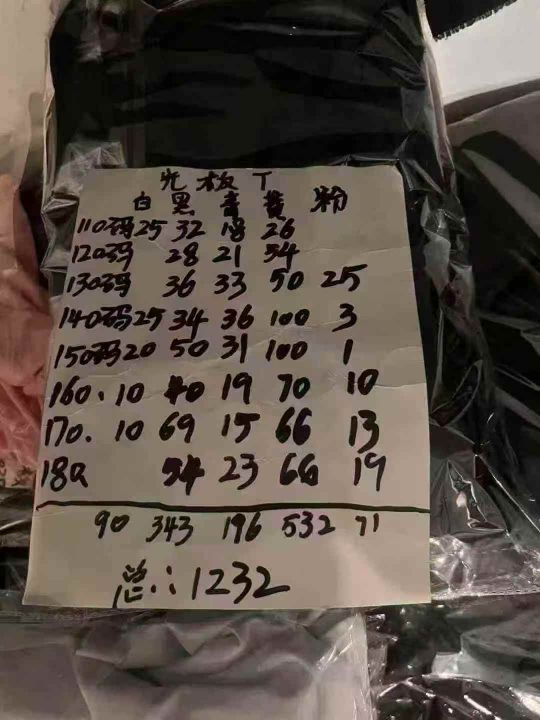 光板T
白 黑 青 黄 粉
110码 25 32 18 26
120码 28 21 54
130码 36 33 50 25
140码 25 34 36 100 3
150码 20 50 31 100 1
160. 10 40 19 70 10
170. 10 69 15 66 13
180 54 23 66 19
90 343 196 532 71
总:1232